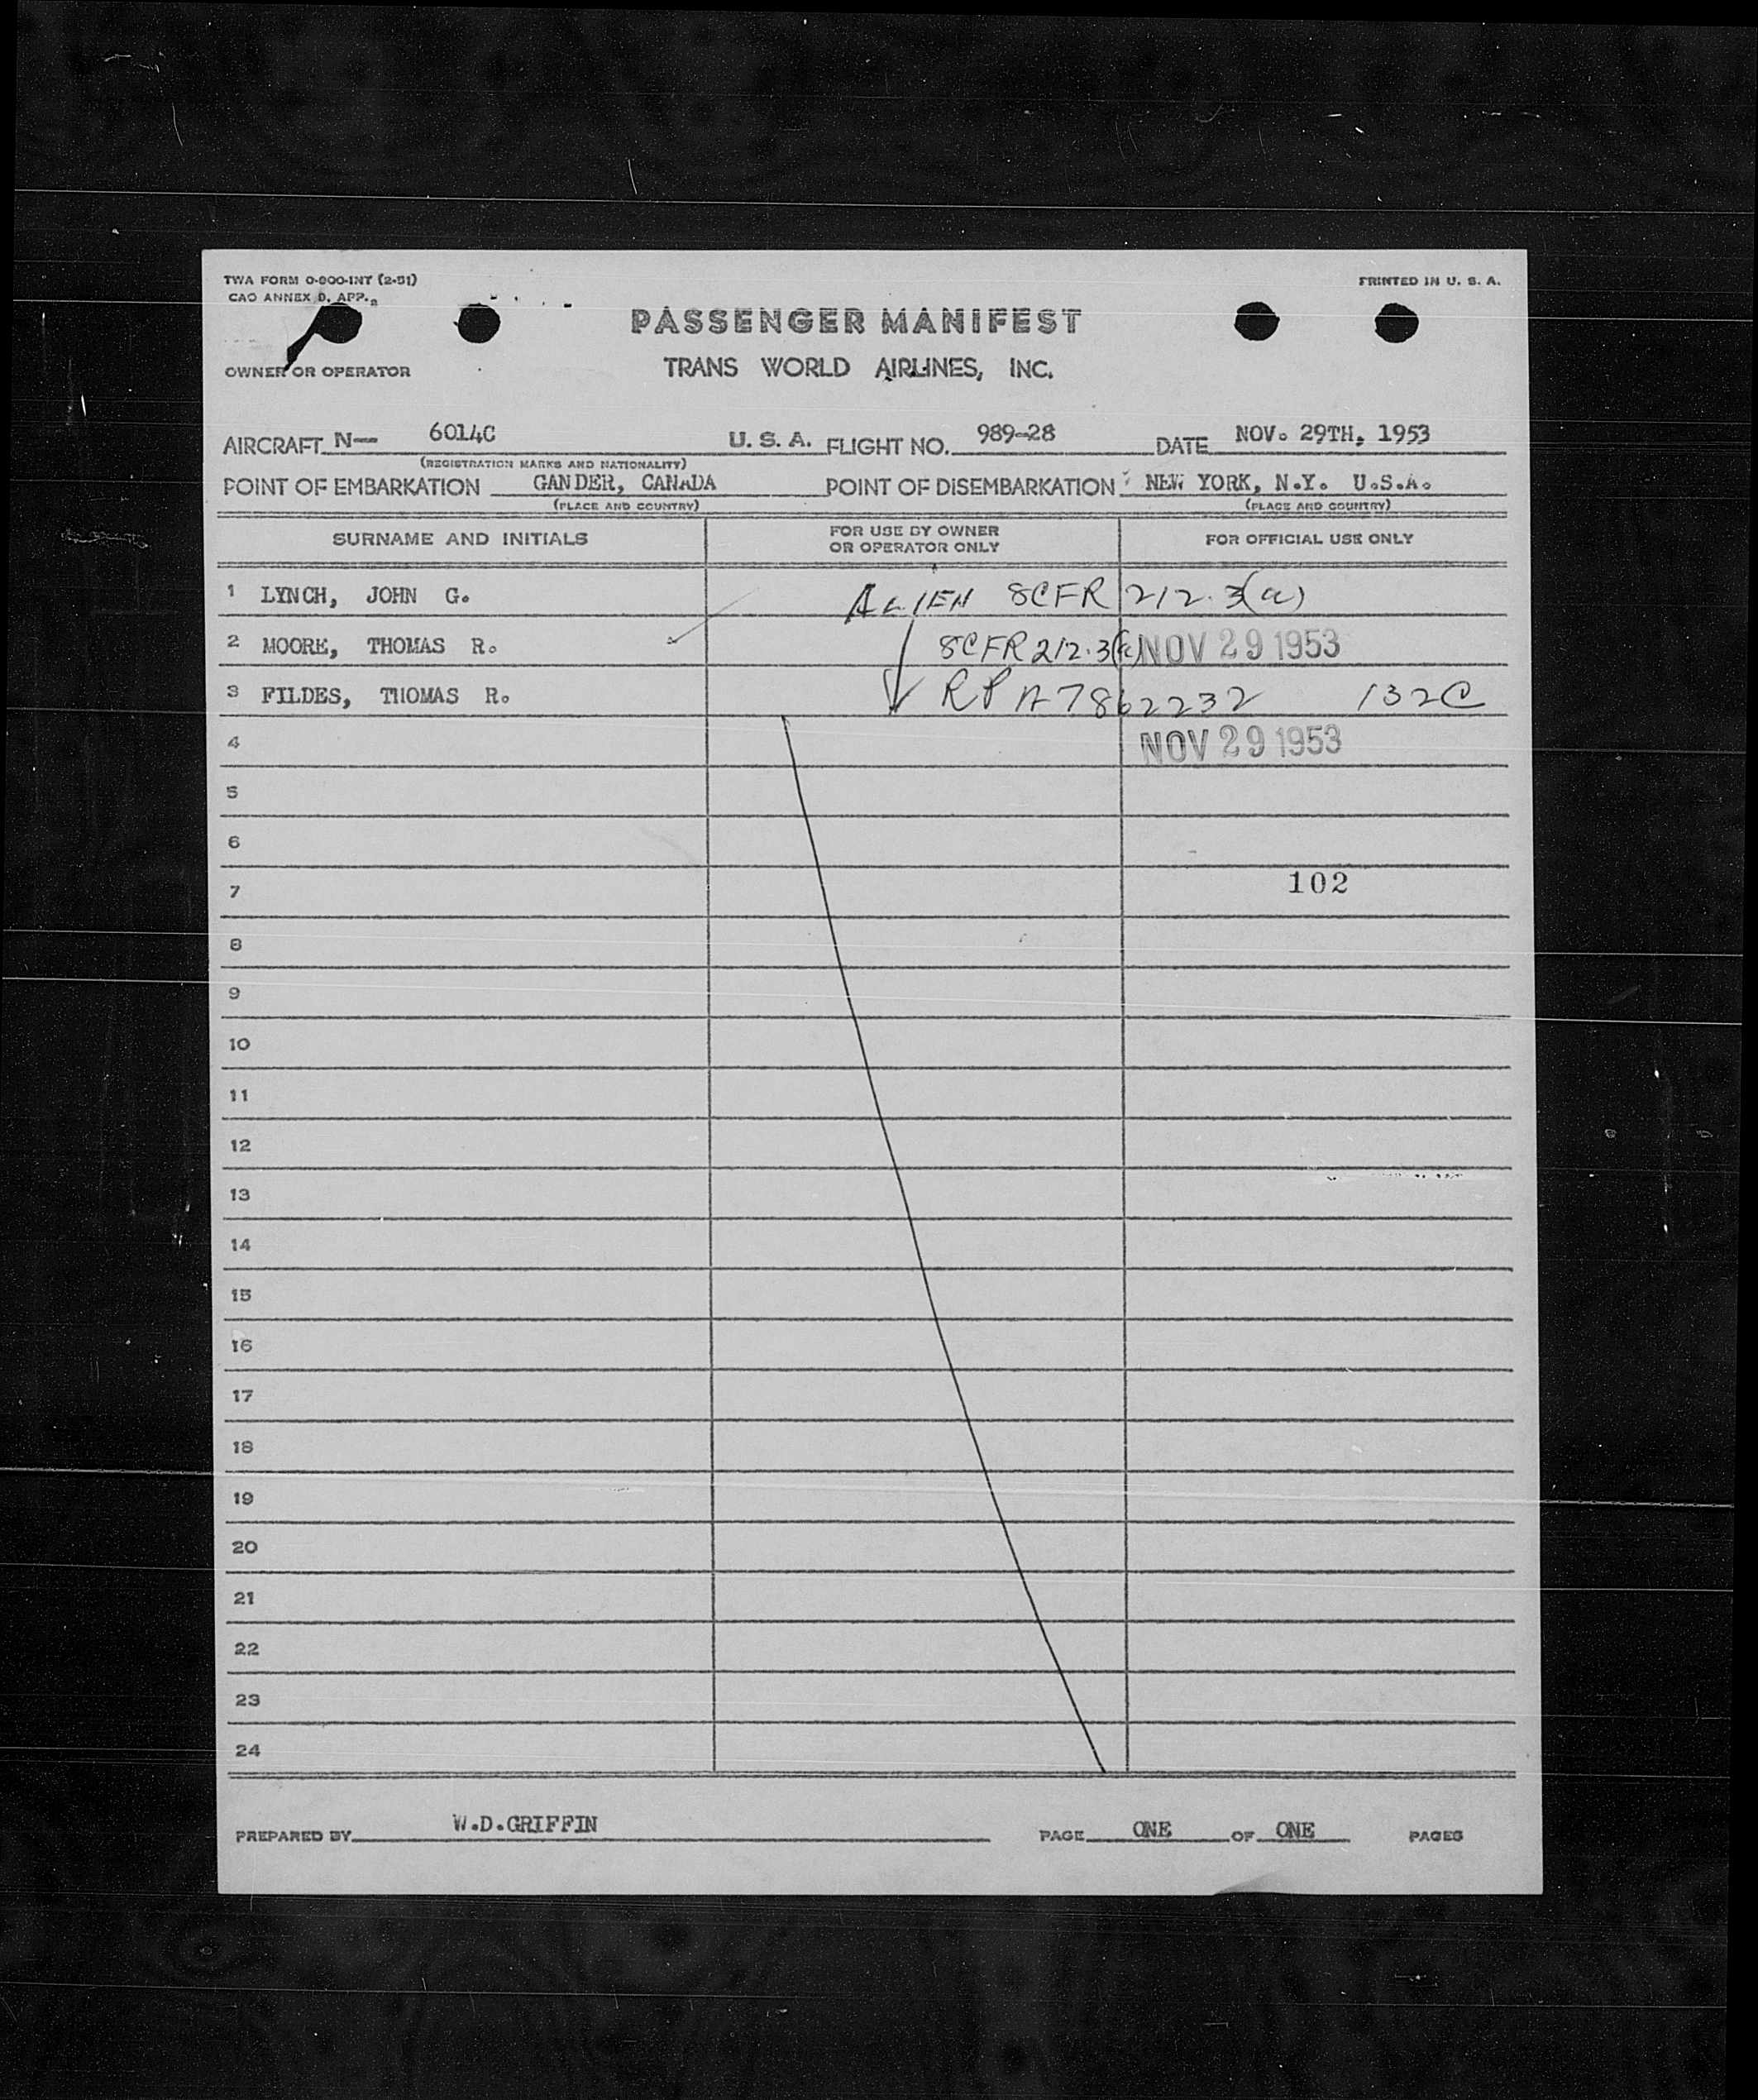 TWA FORM O-800-INT (2-51)
CAO ANNEX D, APP. 2
PRINTED IN U. S. A.
PASSENGER MANIFEST
OWNER OR OPERATOR
TRANS WORLD AIRLINES, INC.
AIRCRAFT N— 6014C U. S. A. FLIGHT NO. 989-28 DATE NOV. 29TH, 1953
(REGISTRATION MARKS AND NATIONALITY)
POINT OF EMBARKATION GANDER, CANADA POINT OF DISEMBARKATION NEW YORK, N.Y. U.S.A.
(PLACE AND COUNTRY) (PLACE AND COUNTRY)
SURNAME AND INITIALS FOR USE BY OWNER OR OPERATOR ONLY FOR OFFICIAL USE ONLY
1 LYNCH, JOHN G. ALIEN 8CFR 212.3(a)
2 MOORE, THOMAS R. 8CFR 212.3(a) NOV 29 1953
3 FILDES, THOMAS R. RP A7862232 132C
4 NOV 29 1953
5
6
7 102
8
9
10
11
12
13
14
15
16
17
18
19
20
21
22
23
24
PREPARED BY W.D.GRIFFIN PAGE ONE OF ONE PAGES